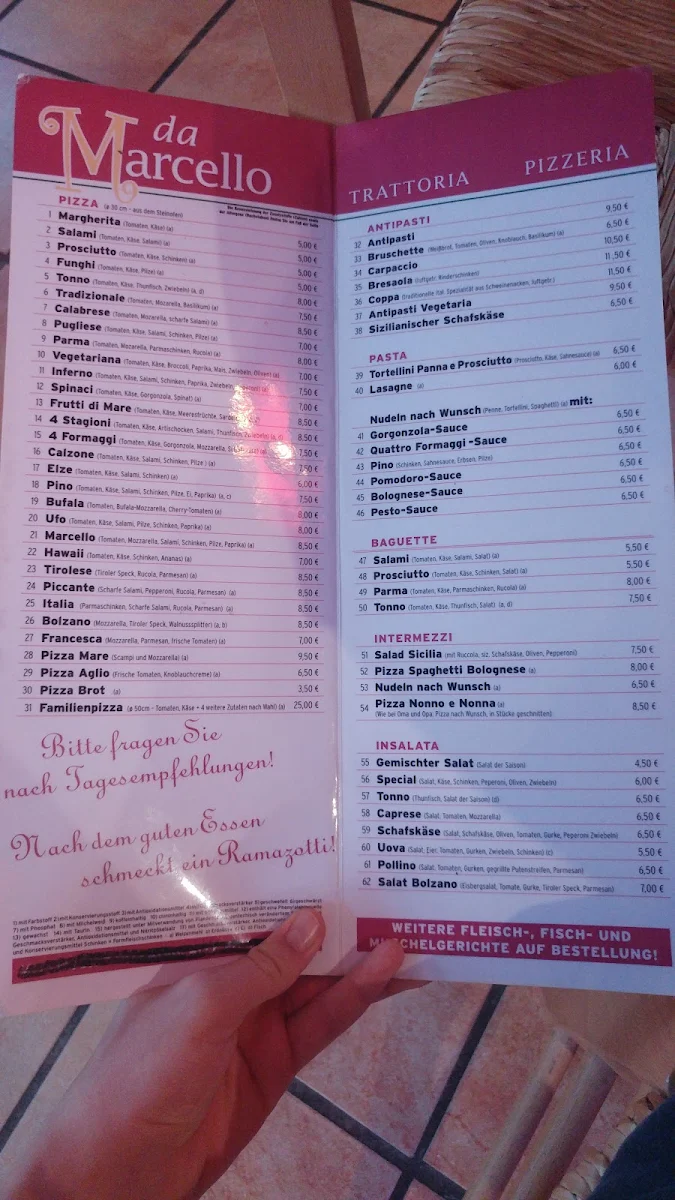 da
Marcello
PIZZA (ø 30 cm - aus dem Steinofen)
1 Margherita (Tomaten, Käse) (a) 5,00 €
2 Salami (Tomaten, Käse, Salami) (a) 5,00 €
3 Prosciutto (Tomaten, Käse, Schinken) (a) 5,00 €
4 Funghi (Tomaten, Käse, Pilze) (a) 5,00 €
5 Tonno (Tomaten, Käse, Thunfisch, Zwiebeln) (a, d) 8,00 €
6 Tradizionale (Tomaten, Mozarella, Basilikum) (a) 7,50 €
7 Calabrese (Tomaten, Mozarella, scharfe Salami) (a) 8,50 €
8 Pugliese (Tomaten, Käse, Salami, Schinken, Pilze) (a) 7,00 €
9 Parma (Tomaten, Mozarella, Parmaschinken, Rucola) (a) 8,00 €
10 Vegetariana (Tomaten, Käse, Broccoli, Paprika, Mais, Zwiebeln, Oliven) (a) 7,00 €
11 Inferno (Tomaten, Käse, Salami, Schinken, Paprika, Zwiebeln, 7,50 €
12 Spinaci (Tomaten, Käse, Gorgonzola, Spinat) (a) 7,00 €
13 Frutti di Mare (Tomaten, Käse, Meeresfrüchte, 8,50 €
14 4 Stagioni (Tomaten, Käse, Artischocken, Salami, Thunfisch, 8,50 €
15 4 Formaggi (Tomaten, Käse, Gorgonzola, Mozzarella, 8,50 €
16 Calzone (Tomaten, Käse, Salami, Schinken, Pilze ) (a) 7,50 €
17 Elze (Tomaten, Käse, Salami, Schinken) (a) 6,00 €
18 Pino (Tomaten, Käse, Salami, Schinken, Pilze, Ei, Paprika) (a, c) 7,50 €
19 Bufala (Tomaten, Bufala-Mozzarella, Cherry-Tomaten) (a) 8,00 €
20 Ufo (Tomaten, Käse, Salami, Pilze, Schinken, Paprika) (a) 8,00 €
21 Marcello (Tomaten, Mozzarella, Salami, Schinken, Pilze, Paprika) (a) 8,50 €
22 Hawaii (Tomaten, Käse, Schinken, Ananas) (a) 7,00 €
23 Tirolese (Tiroler Speck, Rucola, Parmesan) (a) 8,50 €
24 Piccante (Scharfe Salami, Pepperoni, Rucola, Parmesan) (a) 8,50 €
25 Italia (Parmaschinken, Scharfe Salami, Rucola, Parmesan) (a) 8,50 €
26 Bolzano (Mozzarella, Tiroler Speck, Walnusssplitter) (a, b) 8,50 €
27 Francesca (Mozzarella, Parmesan, frische Tomaten) (a) 7,00 €
28 Pizza Mare (Scampi und Mozzarella) (a) 9,50 €
29 Pizza Aglio (Frische Tomaten, Knoblauchcreme) (a) 6,50 €
30 Pizza Brot (a) 3,50 €
31 Familienpizza (ø 50cm - Tomaten, Käse + 4 weitere Zutaten nach Wahl) (a) 25,00 €
Bitte fragen Sie
nach Tagesempfehlungen!
Nach dem guten Essen
schmeckt ein Ramazotti!
TRATTORIA PIZZERIA
ANTIPASTI
32 Antipasti 9,50 €
33 Bruschette (Weißbrot, Tomaten, Oliven, Knoblauch, Basilikum) (a) 6,50 €
34 Carpaccio 10,50 €
35 Bresaola (luftgetr. Rinderschinken) 11,50 €
36 Coppa (Traditionelle ital. Spezialität aus Schweinenacken, luftgetr.) 11,50 €
37 Antipasti Vegetaria 9,50 €
38 Sizilianischer Schafskäse 6,50 €
PASTA
39 Tortellini Panna e Prosciutto (Prosciutto, Käse, Sahnesauce) (a) 6,50 €
40 Lasagne (a) 6,00 €
Nudeln nach Wunsch (Penne, Tortellini, Spaghetti) (a) mit:
41 Gorgonzola-Sauce 6,50 €
42 Quattro Formaggi -Sauce 6,50 €
43 Pino (Schinken, Sahnesauce, Erbsen, Pilze) 6,50 €
44 Pomodoro-Sauce 6,50 €
45 Bolognese-Sauce 6,50 €
46 Pesto-Sauce 6,50 €
BAGUETTE
47 Salami (Tomaten, Käse, Salami, Salat) (a) 5,50 €
48 Prosciutto (Tomaten, Käse, Schinken, Salat) (a) 5,50 €
49 Parma (Tomaten, Käse, Parmaschinken, Rucola) (a) 8,00 €
50 Tonno (Tomaten, Käse, Thunfisch, Salat) (a, d) 7,50 €
INTERMEZZI
51 Salad Sicilia (mit Ruccola, siz. Schafskäse, Oliven, Pepperoni) 7,50 €
52 Pizza Spaghetti Bolognese (a) 8,00 €
53 Nudeln nach Wunsch (a) 6,50 €
54 Pizza Nonno e Nonna (a) 8,50 €
(Wie bei Oma und Opa: Pizza nach Wunsch, in Stücke geschnitten)
INSALATA
55 Gemischter Salat (Salat der Saison) 4,50 €
56 Special (Salat, Käse, Schinken, Peperoni, Oliven, Zwiebeln) 6,00 €
57 Tonno (Thunfisch, Salat der Saison) (d) 6,50 €
58 Caprese (Salat, Tomaten, Mozzarella) 6,50 €
59 Schafskäse (Salat, Schafskäse, Oliven, Tomaten, Gurke, Peperoni Zwiebeln) 6,50 €
60 Uova (Salat, Eier, Tomaten, Gurken, Zwiebeln, Schinken) (c) 5,50 €
61 Pollino (Salat, Tomaten, Gurken, gegrillte Putenstreifen, Parmesan) 6,50 €
62 Salat Bolzano (Eisbergsalat, Tomate, Gurke, Tiroler Speck, Parmesan) 7,00 €
WEITERE FLEISCH-, FISCH- UND
MUSCHELGERICHTE AUF BESTELLUNG!